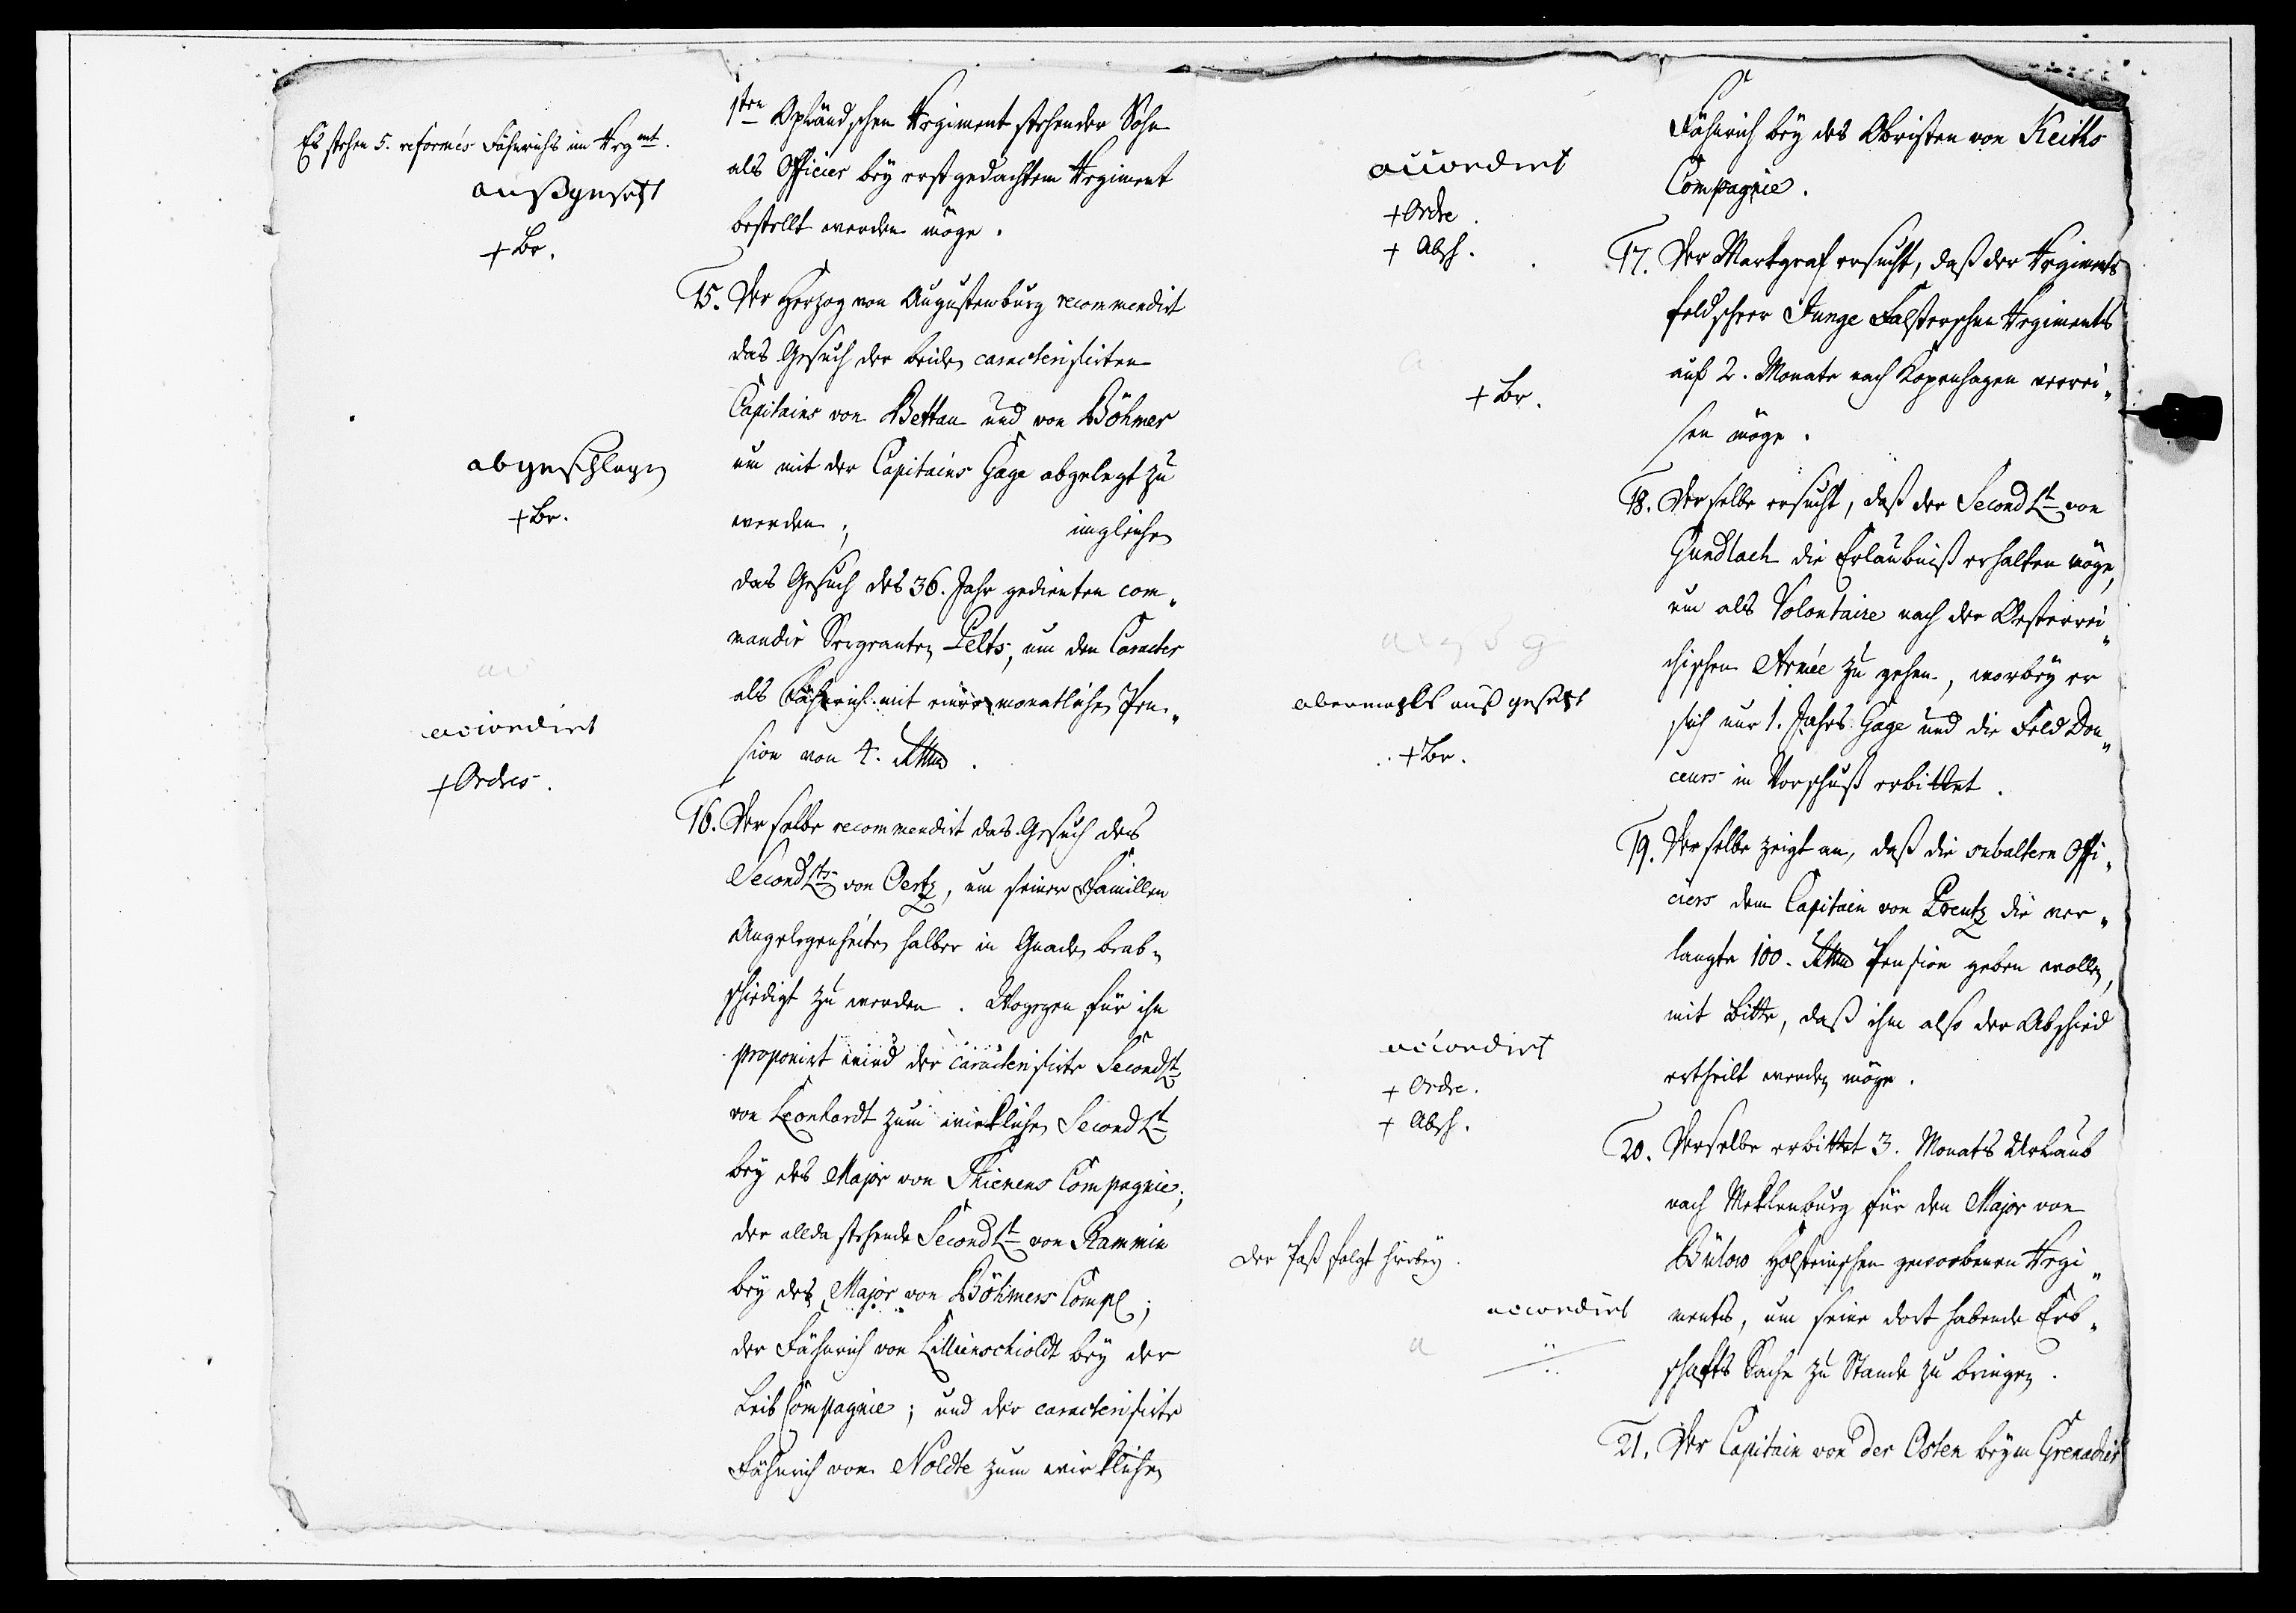 Es stehen 5. reformés Fähnrichs im Regmt.
außgesetzt
+ Br.
abgeschlagen
+ Br.
accordirt
+ Ordres.
1sten Opländschen Regiment stehender Sohn
als Officier bey erstgedachtem Regiment
bestellt werden möge.
15. Der Herzog von Augustenburg recommendirt
das Gesuch der beiden caracterisirten
Capitains von Bettau und von Böhmer
um mit der Capitains Gage abgelegt zu
werden; imgleichen
das Gesuch des 36. Jahr gedienten com„
mandir Sergeanten Pelts, um den Caracter
als Fähnrich mit einer monatlichen Pen„
sion von 4. Rthlr.
16. Derselbe recommendirt das Gesuch des
Second Lts von Oertz, um seiner Familien
Angelegenheiten halber in Gnaden beab„
schiedigt zu werden. Wogegen für ihn
proponirt wird der caracterisirte Second Lt
von Leonhardt zum wirklichen Second Lt
bey des Major von Thienens Compagnie;
der allda stehende Second Lt von Rammin
bey des Major von Böhmers Comp;
der Fähnrich von Lillienschioldt bey der
Leib Compagnie; und der caracterisirte
Fähnrich von Noldte zum wirklichen
accordirt
+ Ordre.
+ Absch.
+ Br.
abermahls außgesetzt
+ Br.
accordirt
+ Ordre.
+ Absch.
Der Paß folgt hierbey.
accordirt
Fähnrich bey des Obristen von Keiths
Compagnie.
17. Der Markgraf ersucht, daß der Regiments
feldscheer Junge Falsterschen Regiments
auf 2. Monate nach Kopenhagen verrei„
sen möge.
18. Derselbe ersucht, daß der Second Lt von
Gundlach die Erlaubniß erhalten möge,
um als Volontaire nach der Oesterrei„
chischen Armée zu gehen, worbey er
sich nur 1. Jahrs Gage und die Feld Dou„
ceurs in Vorschuß erbittet.
19. Derselbe zeigt an, daß die subaltern Offi„
ciers dem Capitain von Preutz die ver„
langte 100. Rthlr Pension geben wollen,
mit Bitte, daß ihm also der Abschied
ertheilt werden möge.
20. Derselbe erbittet 3. Monats Urlaub
nach Meklenburg für den Major von
Bülow Holsteinschen geworbenen Regi„
ments, um seine dort habende Erb„
schafts Sache zu Stande zu bringen.
21. Der Capitain von der Osten beym Grenadier